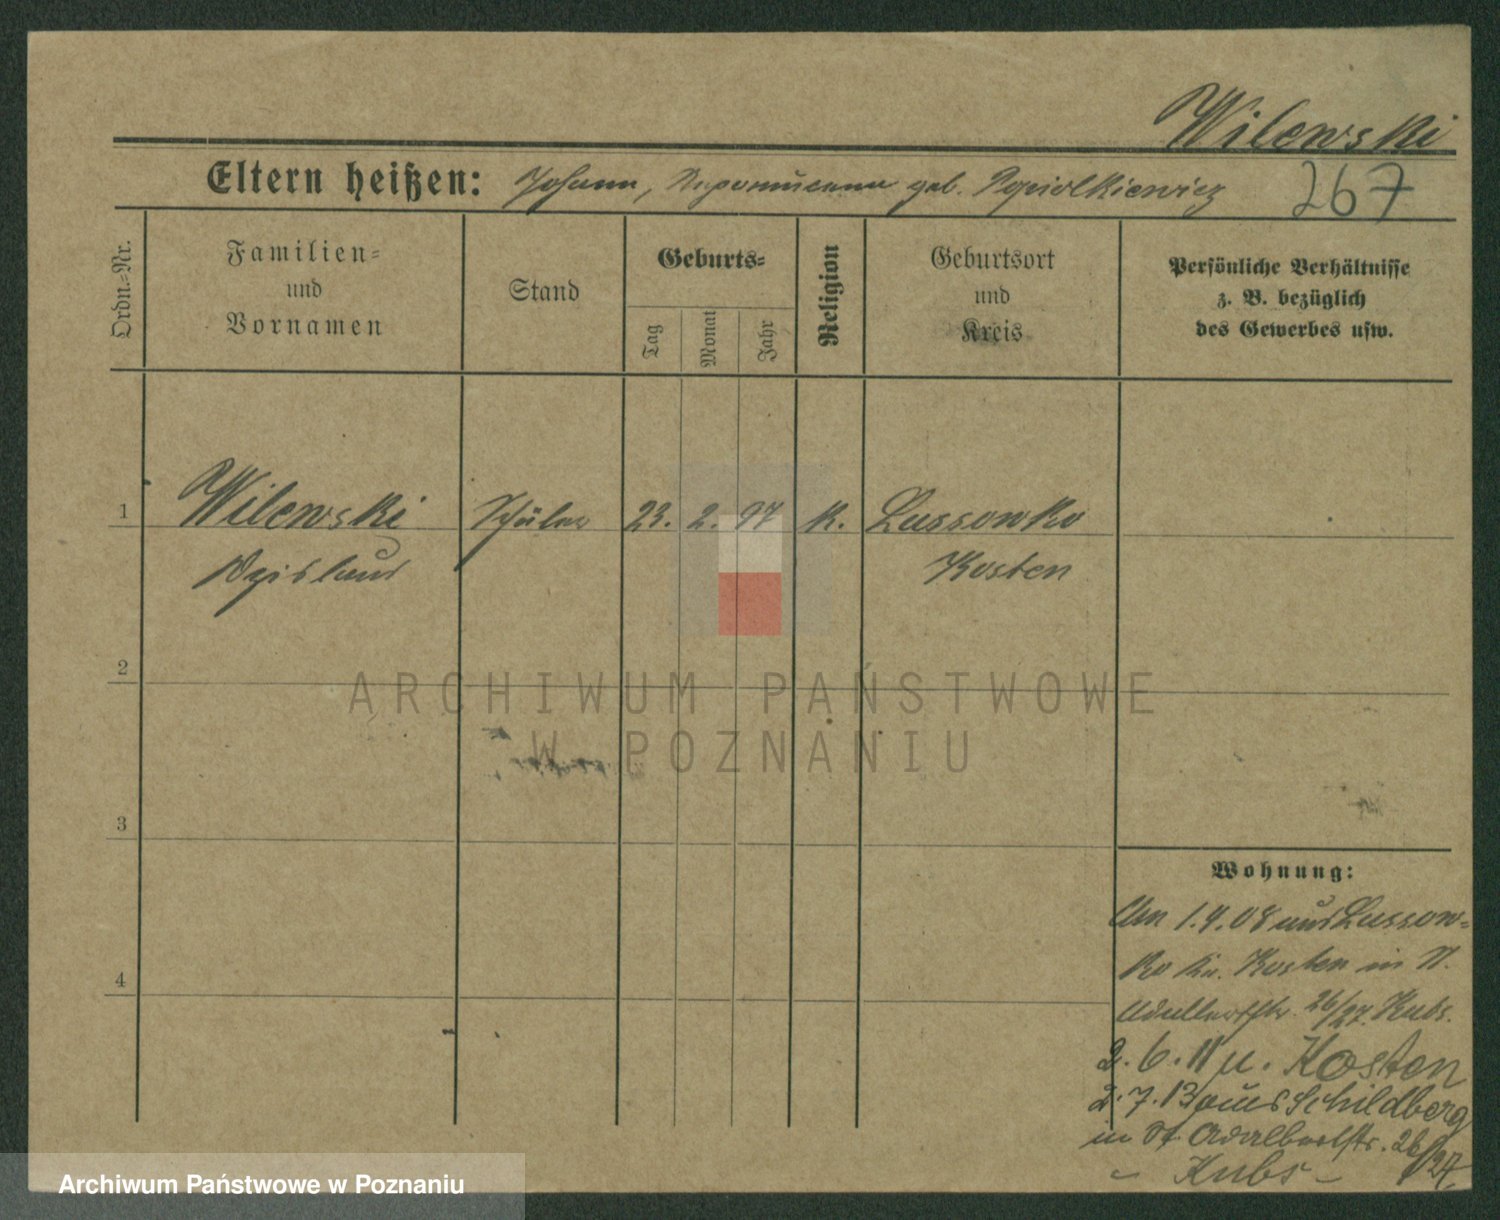 Wilewski
Eltern heißen: Johann, Nepomucena geb. Popiolkiewicz 267
Ordn.-Nr.
Familien-
und
Vornamen
Stand
Geburts-
Tag
Monat
Jahr
Religion
Geburtsort
und
Kreis
Persönliche Verhältnisse
z. B. bezüglich
des Gewerbes usw.
1 Wilewski Schüler 23. 2. 97 K. Lussowko
Kosten
2
ARCHIWUM PAŃSTWOWE
W POZNANIU
3
Wohnung:
Am 1.4.08 aus Lussow-
ko Kr. Kosten in St.
Adalbertstr. 26/27. Kubs.
4
2.6.11 n. Kosten
2.7.13 aus Schildberg
in St Adalbertstr. 26/27.
- Kubs -
Archiwum Państwowe w Poznaniu